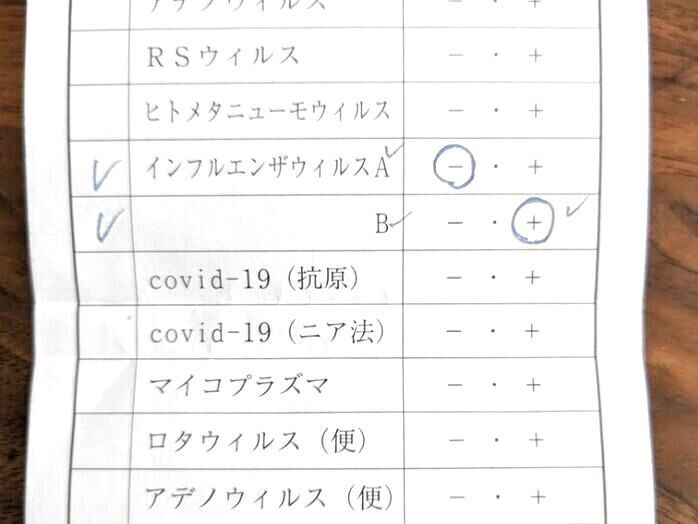 アデノウィルス − ・ +
RSウィルス − ・ +
ヒトメタニューモウィルス − ・ +
✓ インフルエンザウィルスA ✓ − ・ +
✓ B ✓ − ・ + ✓
covid-19（抗原） − ・ +
covid-19（ニア法） − ・ +
マイコプラズマ − ・ +
ロタウィルス（便） − ・ +
アデノウィルス（便） − ・ +